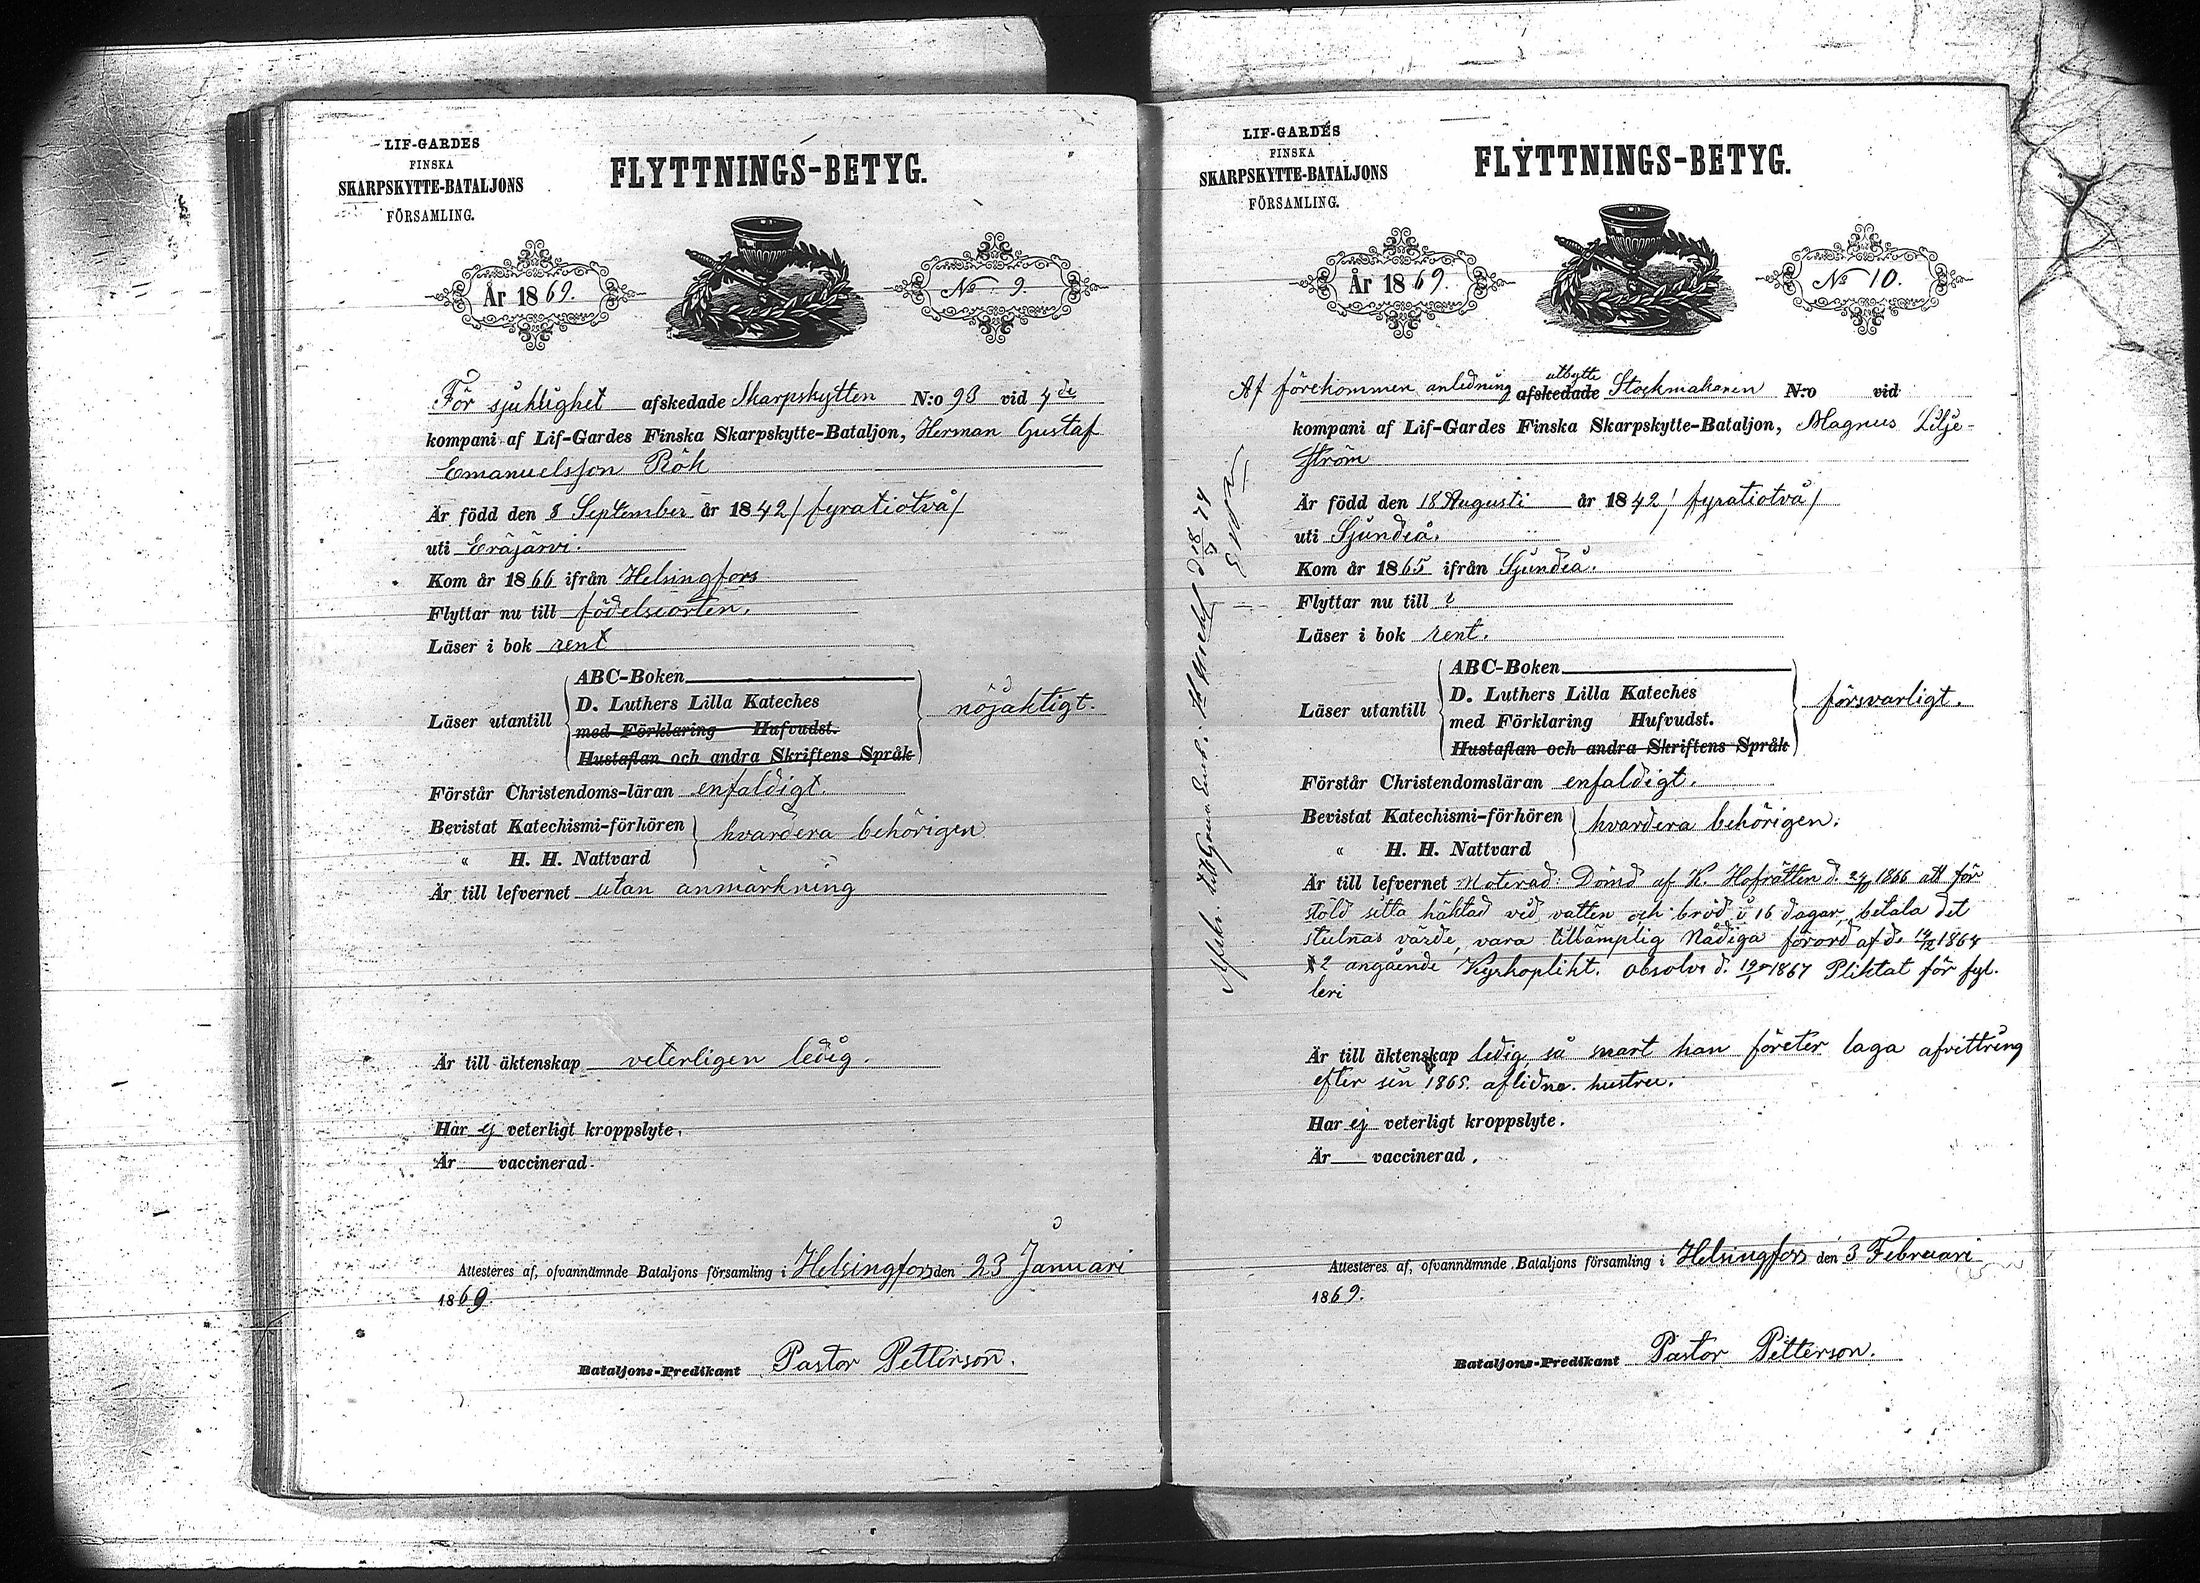 LIF-GARDES
FINSKA
SKARPSKYTTE-BATALJONS
FÖRSAMLING.
FLYTTNINGS-BETYG.
År 1869.
No 9.
För sjuklighet afskedade Skarpskytten N:o 93 vid 4de
kompani af Lif-Gardes Finska Skarpskytte-Bataljon, Herman Gustaf
Emanuelsson Rök
Är född den 8 September år 1842 / fyratiotvå /
uti Eräjärvi.
Kom år 1866 ifrån Helsingfors
Flyttar nu till födelseorten.
Läser i bok rent
Läser utantill
ABC-Boken
D. Luthers Lilla Kateches
med Förklaring Hufvudst.
Hustaflan och andra Skriftens Språk
nöjaktigt.
Förstår Christendoms-läran enfaldigt.
Bevistat Katechismi-förhören
" H. H. Nattvard
hvardera behörigen
Är till lefvernet utan anmärkning
Är till äktenskap veterligen ledig.
Har ej veterligt kroppslyte.
Är vaccinerad.
Attesteres af, ofvannämnde Bataljons församling i Helsingfors den 23 Januari
1869.
Bataljons-Predikant Pastor Petterson.
LIF-GARDES
FINSKA
SKARPSKYTTE-BATALJONS
FÖRSAMLING.
FLYTTNINGS-BETYG.
År 1869.
No 10.
utbytte
Af förekommen anledning afskedade Stockmakaren N:o vid
kompani af Lif-Gardes Finska Skarpskytte-Bataljon, Magnus Lilje-
ström
Är född den 18 Augusti år 1842 / fyratiotvå /
uti Sjundeå.
Kom år 1865 ifrån Sjundeå.
Flyttar nu till
Läser i bok rent.
Läser utantill
ABC-Boken
D. Luthers Lilla Kateches
med Förklaring Hufvudst.
Hustaflan och andra Skriftens Språk
försvarligt.
Förstår Christendomsläran enfaldigt.
Bevistat Katechismi-förhören
" H. H. Nattvard
hvardera behörigen.
Är till lefvernet Noterad: Dömd af K. Hofrätten d. 1866 att för
stöld sitta häktad vid vatten och bröd i 16 dagar, betala det
stulnas värde, vara tillämplig Nådiga förord af d. 14/12 1864
§ 2 angående Kyrkoplikt. Absolv. d. 1867 Pliktat för fyl-
leri
Är till äktenskap ledig så snart han företer laga afvittring
efter sin 1865 aflidna hustru.
Har ej veterligt kroppslyte.
Är vaccinerad.
Attesteres af, ofvannämnde Bataljons församling i Helsingfors den 3 Februari
1869.
Bataljons-Predikant Pastor Petterson.